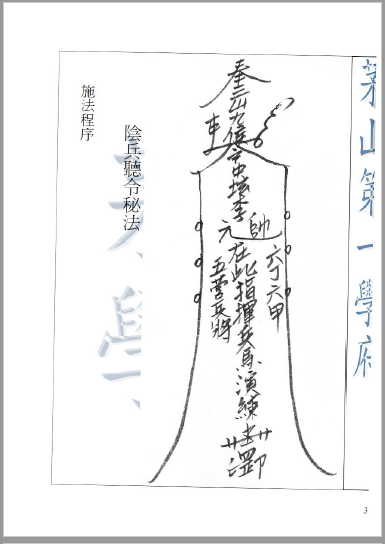 茅山第一學府
六丁六甲
奉三山九侯令中壇李元帥在此指揮兵馬演練
五營兵將
陰兵聽令秘法
施法程序
3